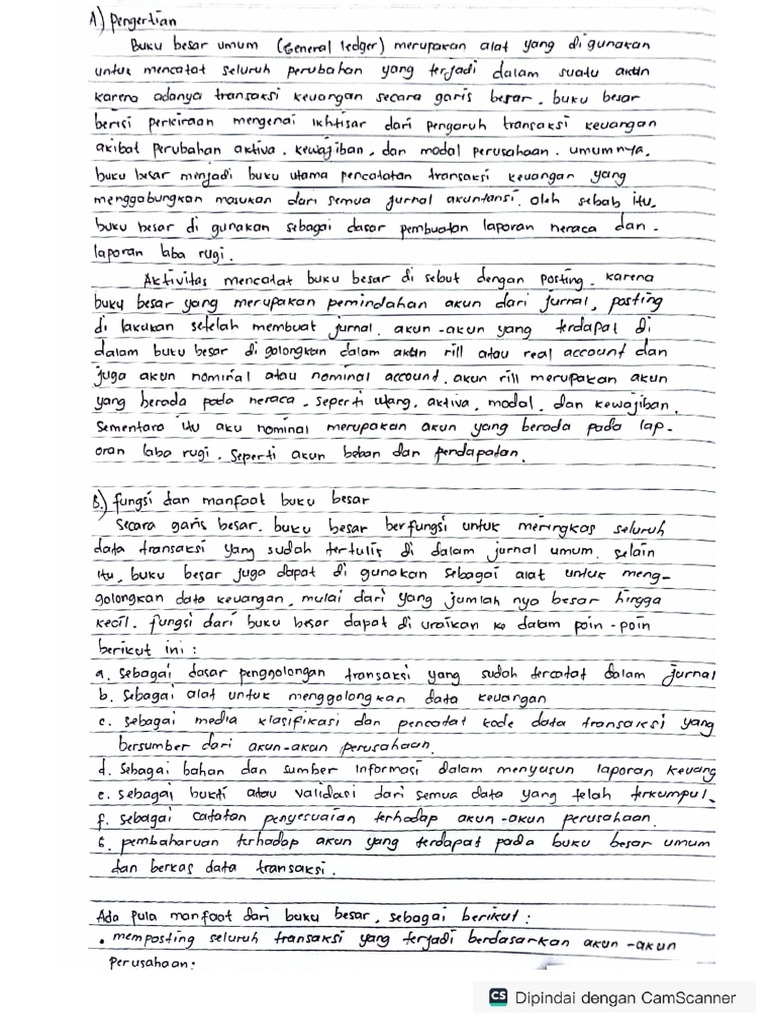 A) Pengertian
Buku besar umum (General ledger) merupakan alat yang di gunakan
untuk mencatat seluruh perubahan yang terjadi dalam suatu akun
karena adanya transaksi keuangan secara garis besar. buku besar
berisi perkiraan mengenai ikhtisar dari pengaruh transaksi keuangan
akibat perubahan aktiva. kewajiban, dan modal perusahaan. umumnya,
buku besar menjadi buku utama pencatatan transaksi keuangan yang
menggabungkan masukan dari semua jurnal akuntansi. oleh sebab itu,
buku besar di gunakan sebagai dasar pembuatan laporan neraca dan -
laporan laba rugi.
Aktivitas mencatat buku besar di sebut dengan posting. karena
buku besar yang merupakan pemindahan akun dari jurnal, posting
di lakukan setelah membuat jurnal. akun -akun yang terdapat di
dalam buku besar di golongkan dalam akun rill atau real account dan
juga akun nominal atau nominal account. akun rill merupakan akun
yang berada pada neraca. seperti utang, aktiva, modal, dan kewajiban.
Sementara itu aku nominal merupakan akun yang berada pada lap-
oran laba rugi. seperti akun beban dan pendapatan.
B.) fungsi dan manfaat buku besar
Secara garis besar. buku besar berfungsi untuk meringkas seluruh
data transaksi yang sudah tertulis di dalam jurnal umum. selain
itu, buku besar juga dapat di gunakan sebagai alat untuk meng-
golongkan data keuangan, mulai dari yang jumlah nya besar hingga
kecil. fungsi dari buku besar dapat di uraikan ke dalam poin -poin
berikut ini :
a. sebagai dasar penggolongan transaksi yang sudah tercatat dalam jurnal
b. sebagai alat untuk menggolongkan data keuangan
c. sebagai media klasifikasi dan pencatat kode data transaksi yang
bersumber dari akun-akun perusahaan.
d. sebagai bahan dan sumber informasi dalam menyusun laporan keuang
e. sebagai bukti atau validasi dari semua data yang telah terkumpul.
f. sebagai catatan penyesuaian terhadap akun -akun perusahaan.
G. pembaharuan terhadap akun yang terdapat pada buku besar umum
dan berkas data transaksi.
Ada pula manfaat dari buku besar, sebagai berikut :
• memposting seluruh transaksi yang terjadi berdasarkan akun -akun
perusahaan:
CS Dipindai dengan CamScanner